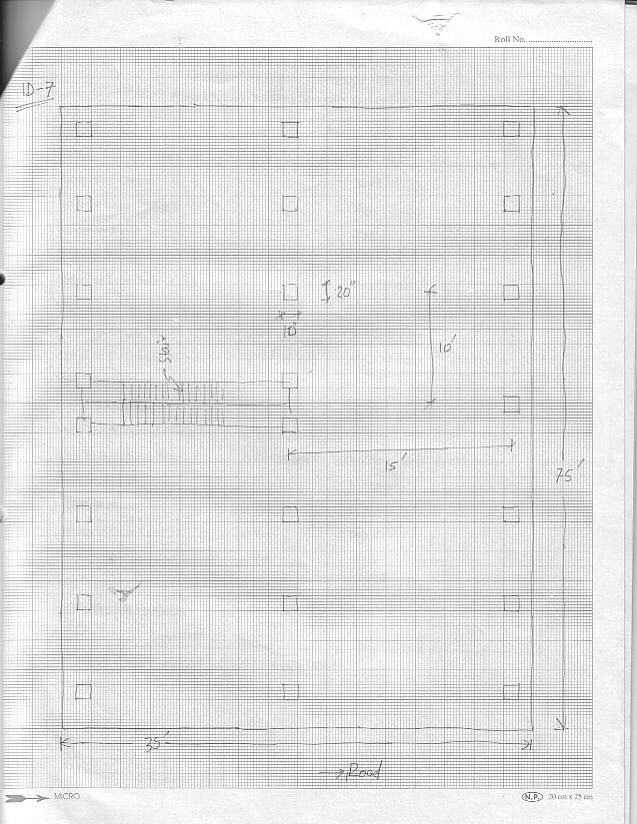 Roll No. ............................
ID-7
20"
10"
10'
stair
15'
75'
35'
→ Road
MICRO
N.P. 20 cm x 25 cm